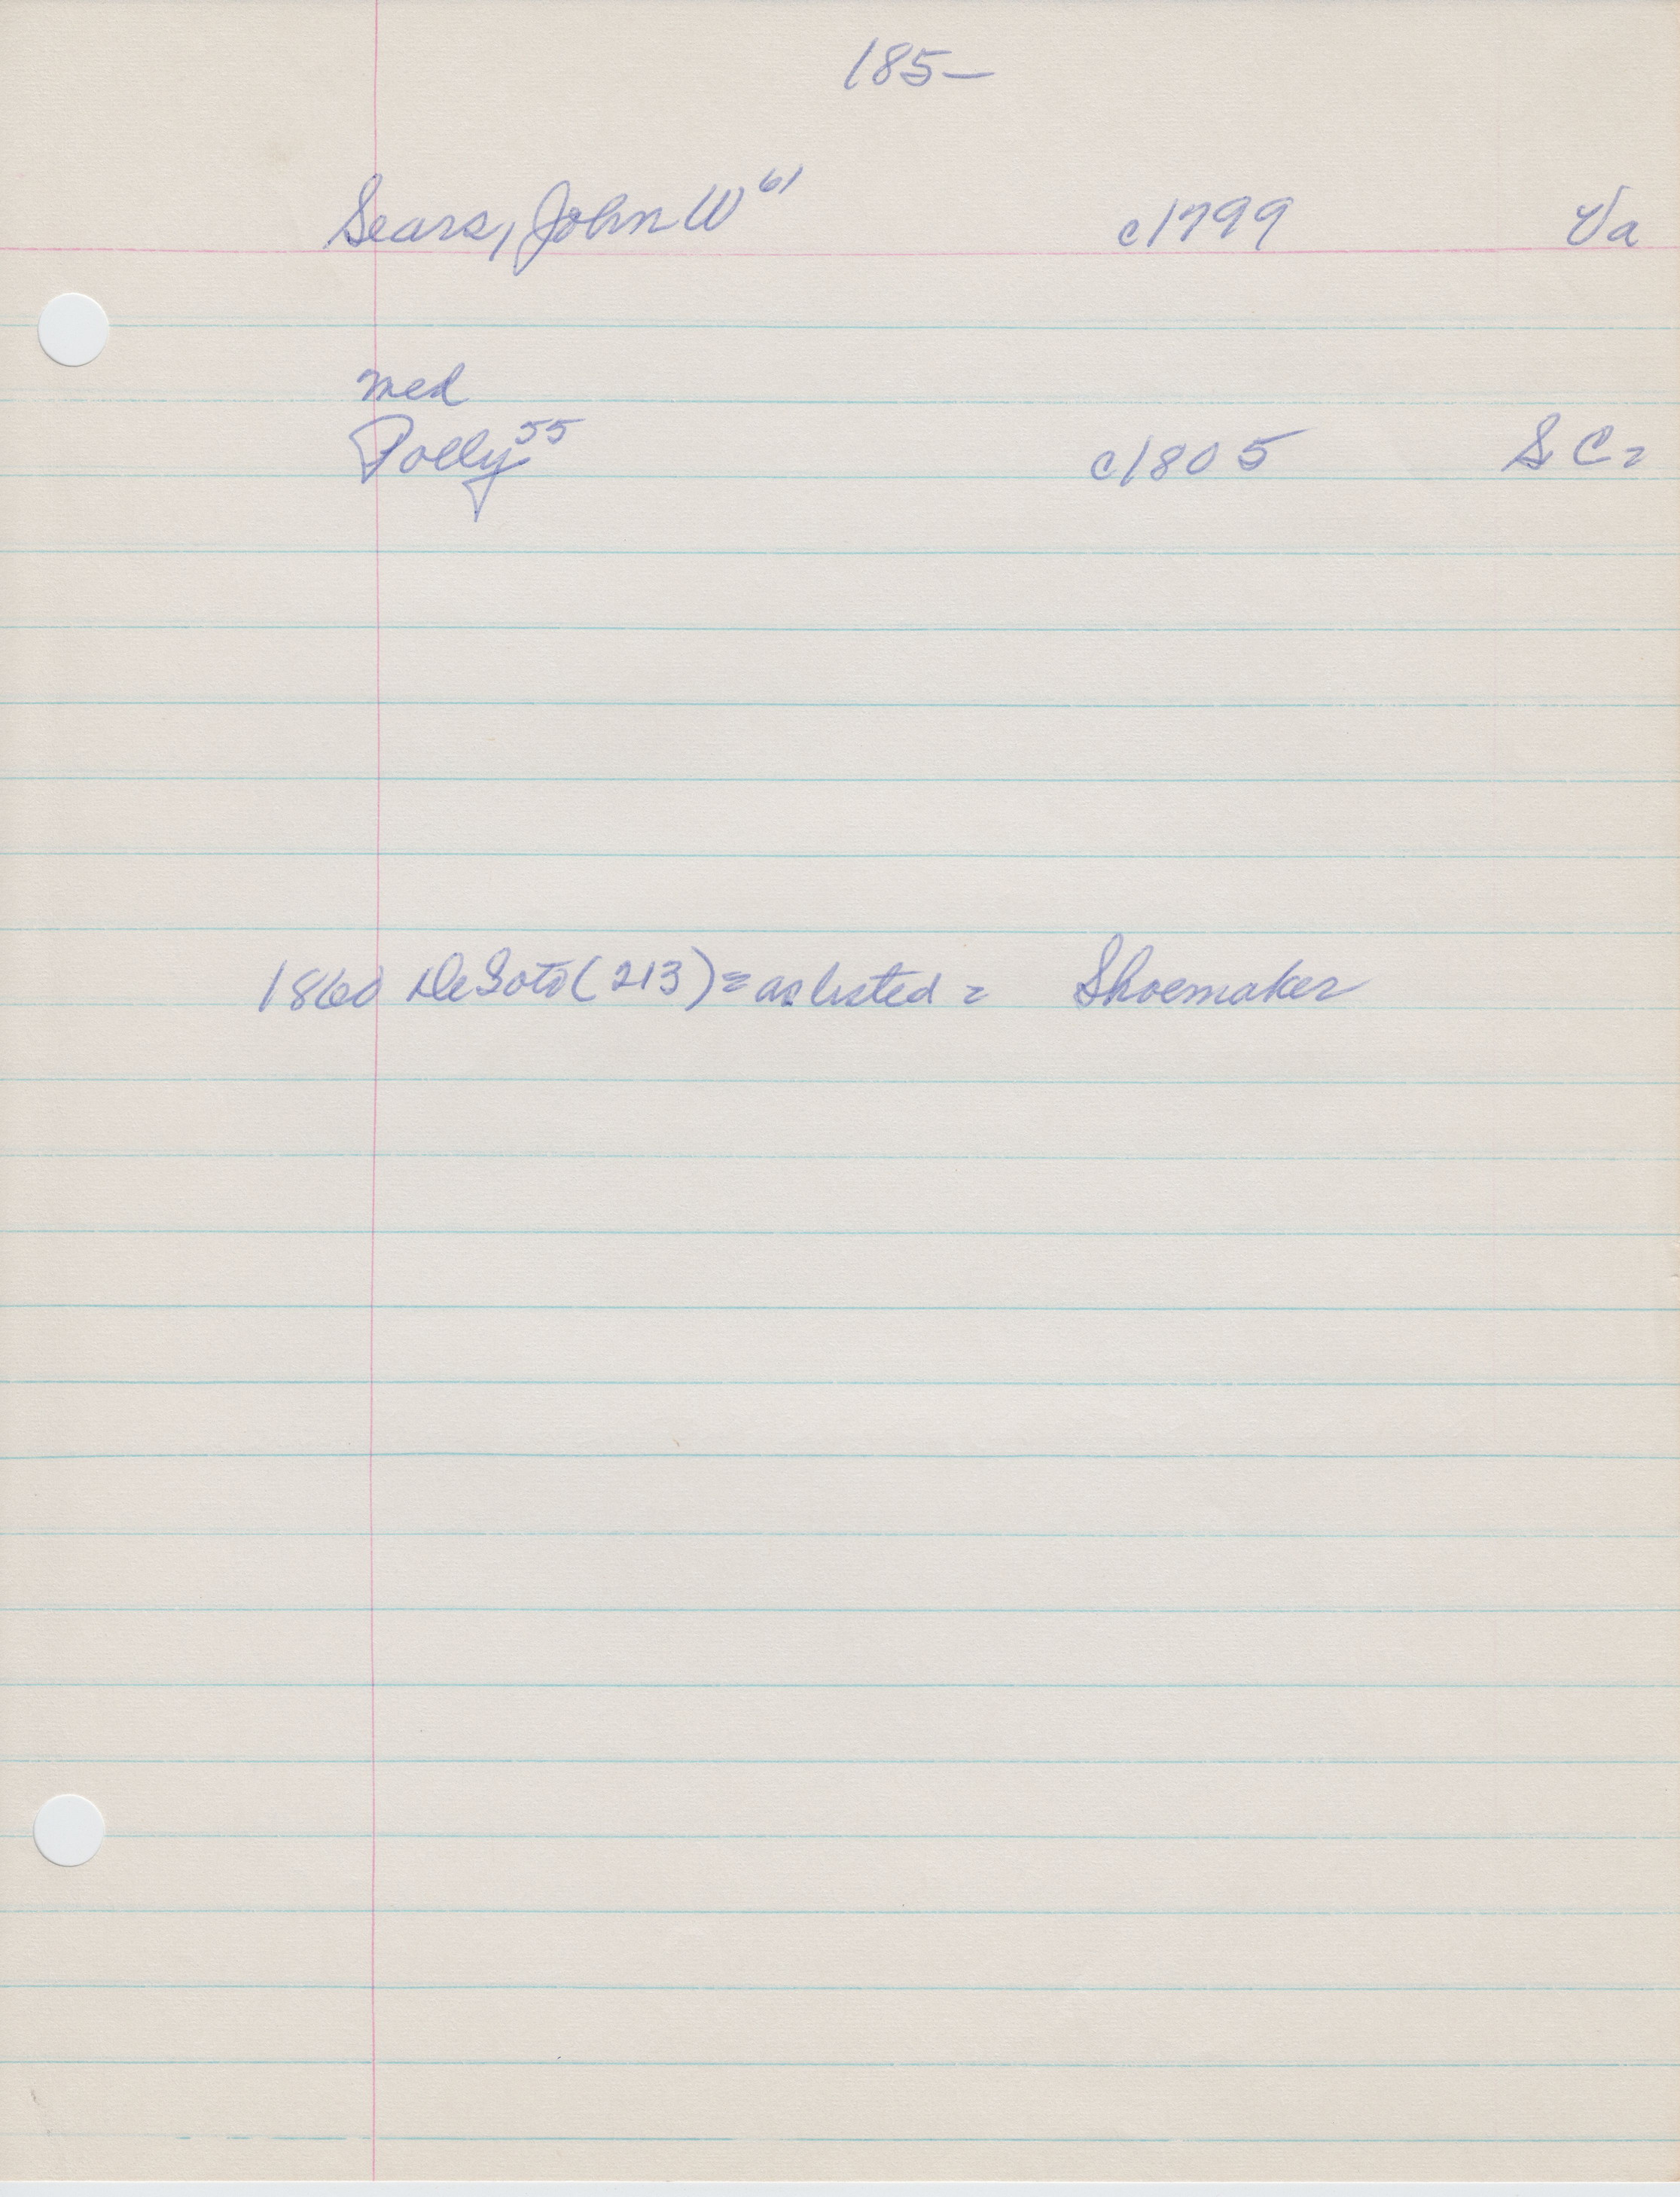 185-
Sears, John W 61 c1799 Va
med
Polly 55 c1805 S C =
1860 DeSoto (213) = as listed = Shoemaker